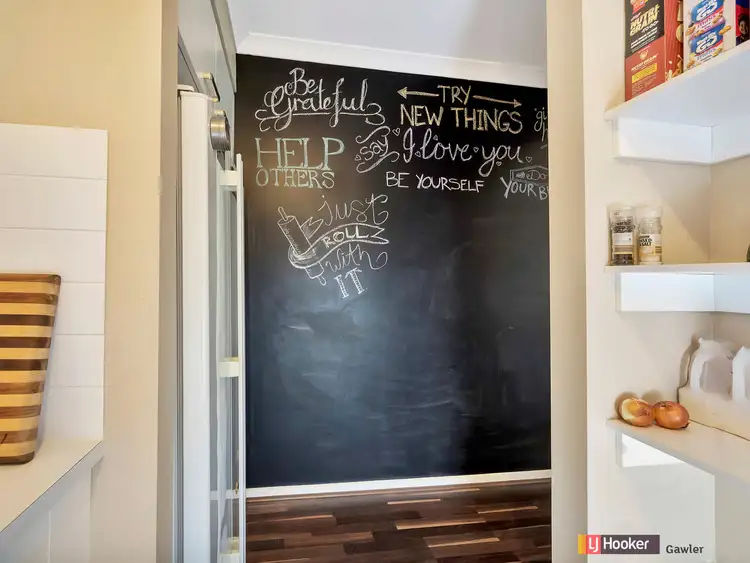 Be
Grateful
TRY
NEW THINGS
HELP
OTHERS
SAY
I love you
BE YOURSELF
Do
YOUR B
Just
ROLL
with
IT
NUTRI
GRAIN
LJ Hooker
Gawler